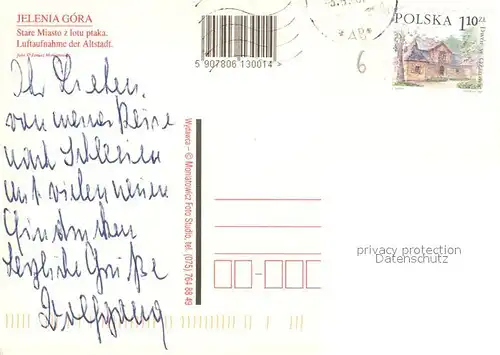 JELENIA GÓRA
Stare Miasto z lotu ptaka.
Luftaufnahme der Altstadt.
5 907806 130014 >
POLSKA 1,10 ZŁ
AB
6
Ihr Lieben,
von meiner Reise
nach Schlesien
mit vielen neuen
Eindrücken
herzliche Grüße
Wolfgang
Wydawca - © Moniatowicz Foto Studio, tel. (075) 764 88 49
privacy protection
Datenschutz